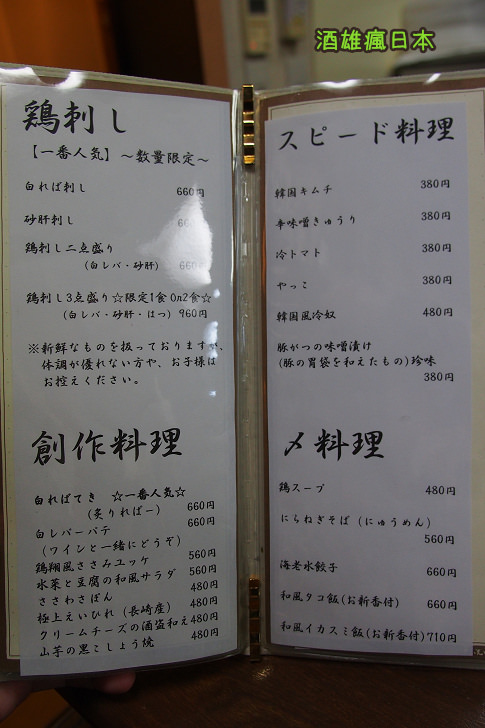 酒雄瘋日本
鶏刺し
【一番人気】～数量限定～
白れば刺し 660円
砂肝刺し 66
鶏刺し二点盛り
(白レバ・砂肝) 660
鶏刺し3点盛り☆限定1食Or2食☆
(白レバ・砂肝・はつ) 960円
※新鮮なものを扱っておりますが、
体調が優れない方や、お子様は
お控えください。
創作料理
白ればてき ☆一番人気☆
(炙りればー) 660円
白レバーパテ 660円
(ワインと一緒にどうぞ)
鶏翔風ささみユッケ 560円
水菜と豆腐の和風サラダ 560円
ささわさぽん 480円
極上えいひれ(長崎産) 480円
クリームチーズの酒盗和え 480円
山芋の黒こしょう焼 480円
スピード料理
韓国キムチ 380円
辛味噌きゅうり 380円
冷トマト 380円
やっこ 380円
韓国風冷奴 480円
豚がつの味噌漬け
(豚の胃袋を和えたもの)珍味
380円
〆料理
鶏スープ 480円
にらねぎそば(にゅうめん)
560円
海老水餃子 660円
和風タコ飯(お新香付) 660円
和風イカスミ飯(お新香付) 710円